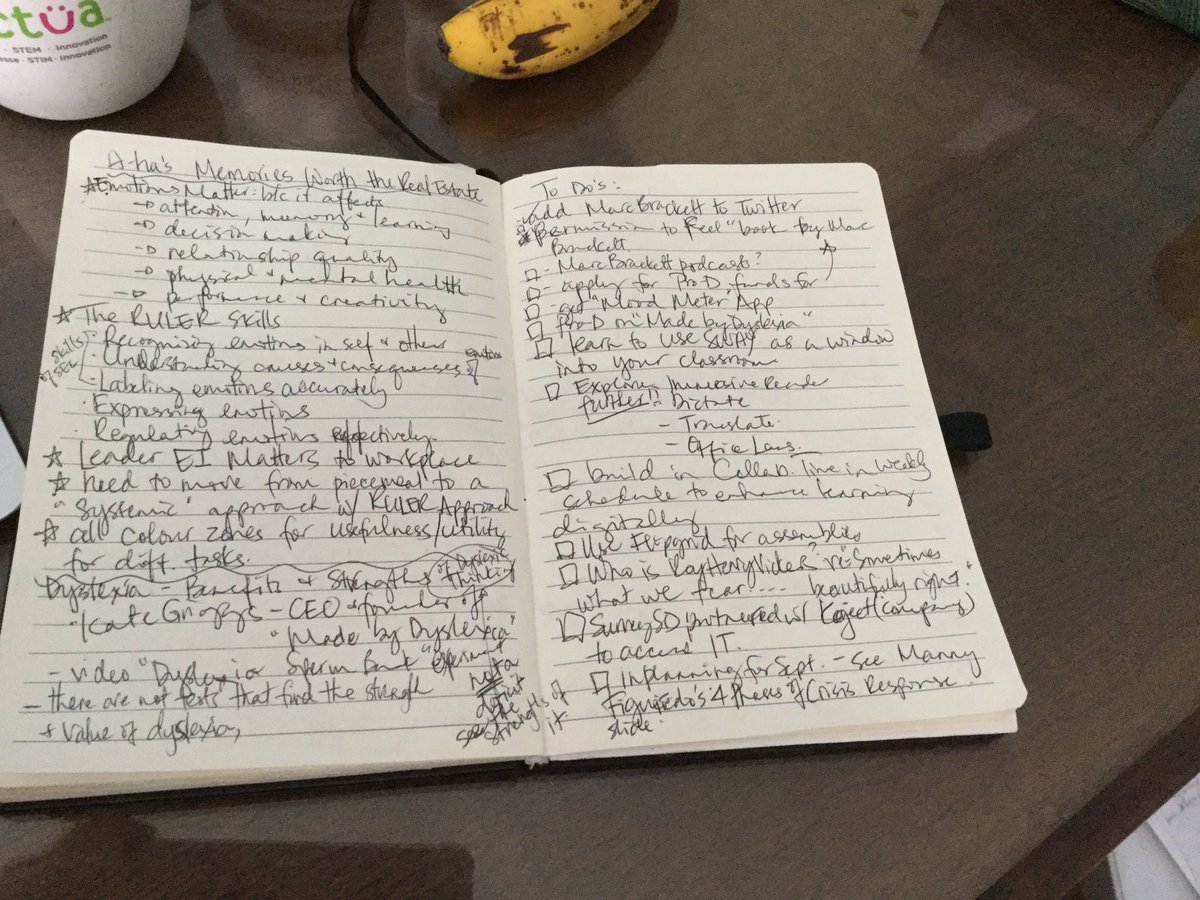 ctüa
· STEM · Innovation
· STIM · Innovation
A-ha's Memories Worth the Real Estate
* Emotions Matter: b/c it affects
→ attention, memory + learning
→ decision making
→ relationship quality
→ physical + mental health
→ performance + creativity
* The RULER Skills
· Recognizing emotions in self + others
Skills of SEL
· Understanding causes + consequences of emotions
· Labeling emotions accurately
· Expressing emotions
· Regulating emotions effectively.
* Leader EI Matters to workplace
* need to move from piecemeal to a
"systemic" approach w/ RULER Approach
* all colour zones for usefulness/utility
for diff. tasks.
Dyslexia - Benefits + Strengths of Dyslexic Thinking
· Kate Griggs - CEO + founder of
"Made by Dyslexia"
- video "Dyslexia Sperm Bank" experiment
- there are not tests that find the strength
+ value of dyslexia,
not a
deficit
strengths of
it
To Do's:
add Marc Brackett to Twitter
* "Permission to Feel" book by Marc
Brackett.
□ - Marc Brackett podcasts?
□ - apply for Pro D funds for
□ - get "Mood Meter" App
□ Pro-D on "Made by Dyslexia"
□ learn to use SWAY as a window
into your classroom
□ Explore Immersive Reader
further!! - Dictate
- Translate
- Office Lens.
□ build in Collab. Time in weekly
schedule to enhance learning
digitally
□ Use Flipgrid for assemblies
□ Who is Roy Henry Vickers in re: "Sometimes
what we fear.... beautifully right."
□ Surrey SD partnered w/ (company)
to access IT.
□ In planning for Sept. - see Manny
Figuiredo's 4 Phases of Crisis Response
slide.